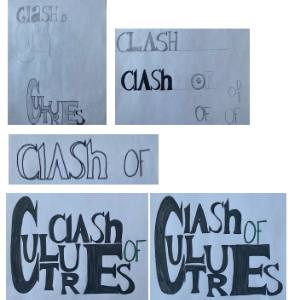 Clash
CULTURES
CLASH
CLASH OF
of
OF OF
CLASh OF
CLASh OF
CULTURES
CLASh OF
CULTURES